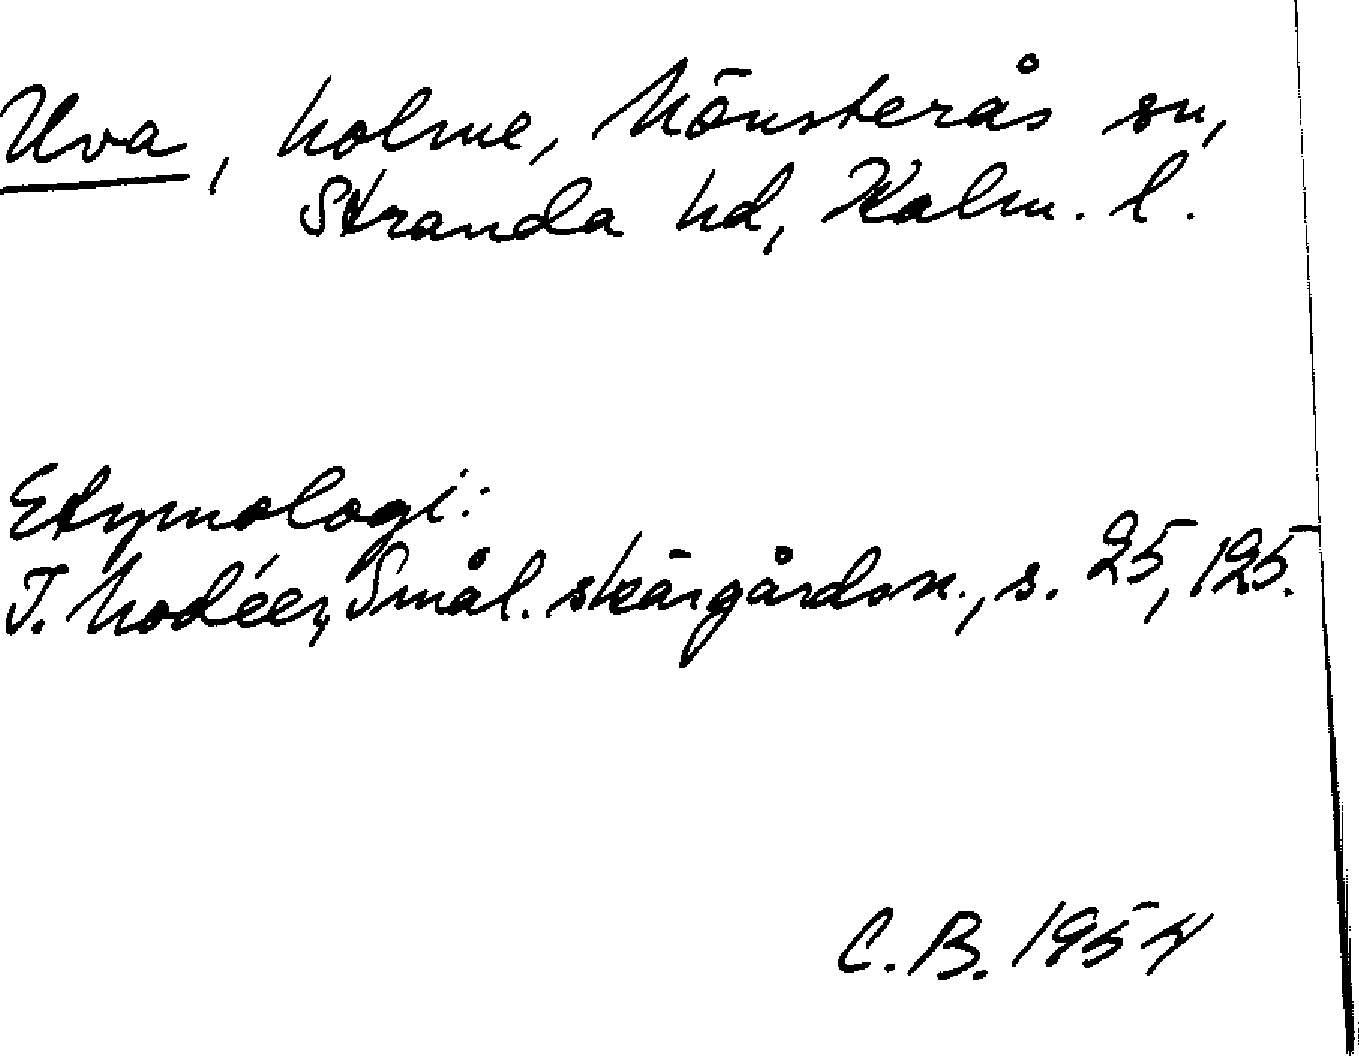 Uva, holme, Mönsterås sn,
Stranda hd, Kalm. l.
Etymologi:
I. Modéer, Smål. skärgårdsn., s. 25, 125.
C. B. 1954